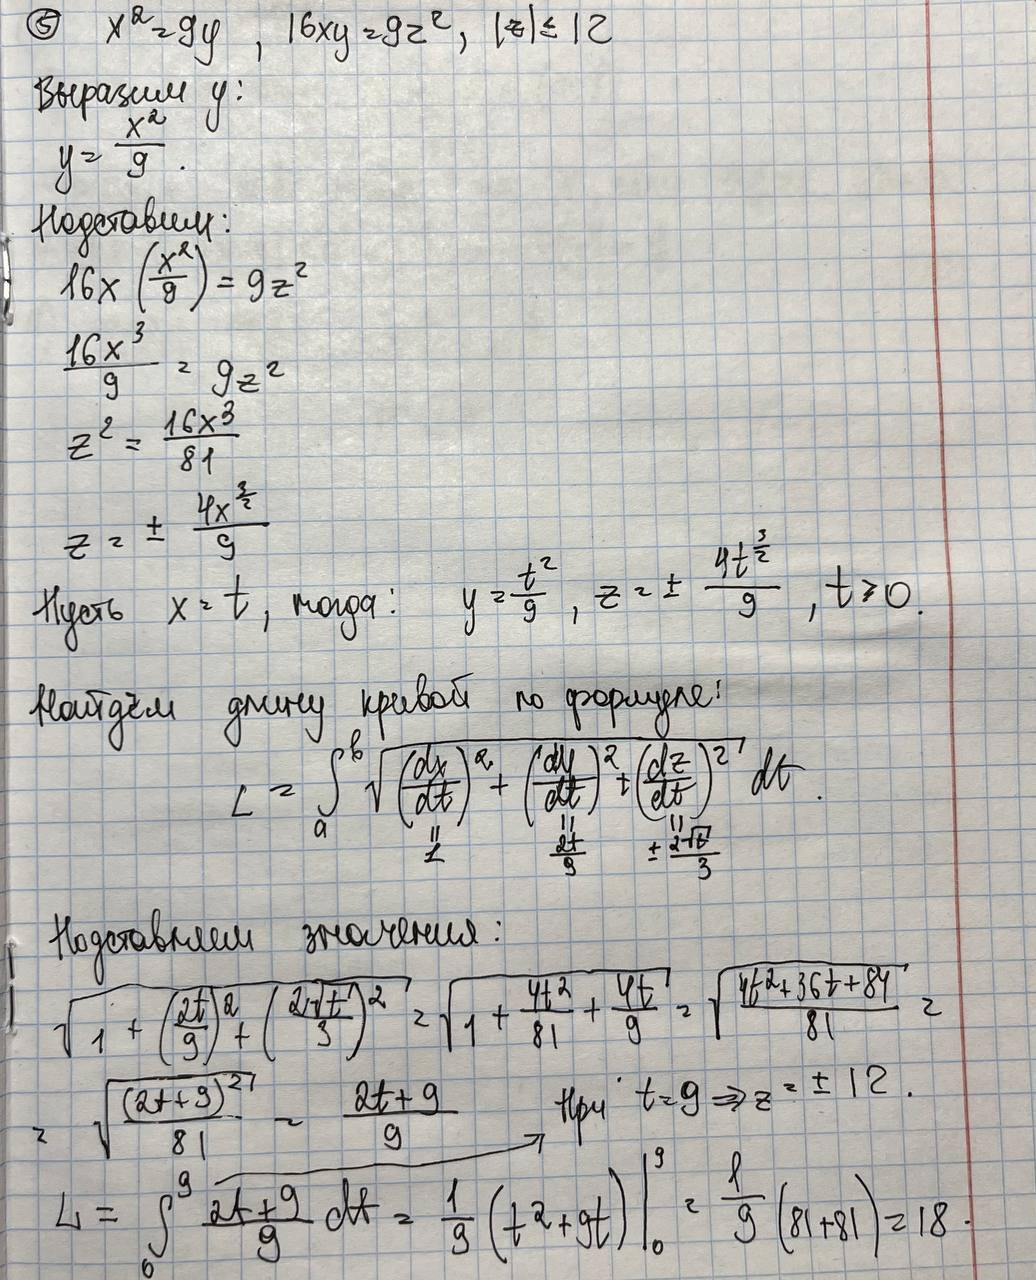 ⑤ x² = 9y , 16xy = 9z², |z| ≤ 12
Выразим y:
y = x²/9 .
Подставим:
16x (x²/9) = 9z²
16x³/9 = 9z²
z² = 16x³/81
z = ± 4x^(3/2)/9
Пусть x = t, тогда: y = t²/9 , z = ± 4t^(3/2)/9 , t ≥ 0.
Найдём длину кривой по формуле:
L = ∫ₐᵇ √((dx/dt)² + (dy/dt)² + (dz/dt)²) dt .
= 1 = 2t/9 = ± 2√t/3
Подставляем значения:
√(1 + (2t/9)² + (2√t/3)²) = √(1 + 4t²/81 + 4t/9) = √((4t²+36t+84)/81) =
= √((2t+9)²/81) = (2t+9)/9 При t=9 ⇒ z = ± 12 .
L = ∫₀⁹ (2t+9)/9 dt = 1/9 (t²+9t) |₀⁹ = 1/9 (81+81) = 18 .